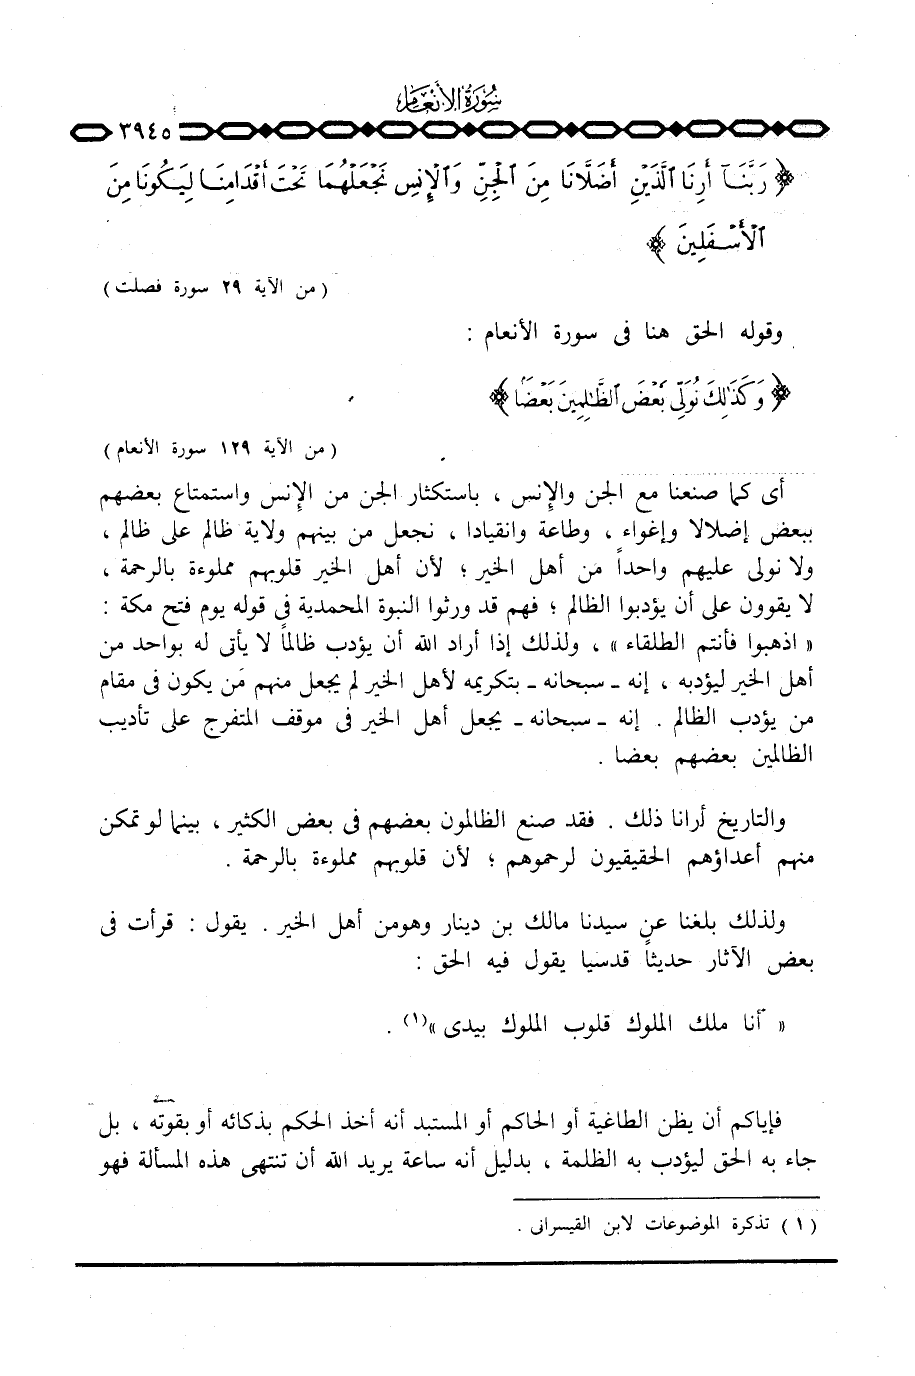 سورة الأنعام
٣٩٤٥
﴿ رَبَّنَآ أَرِنَا ٱلَّذَيْنِ أَضَلَّانَا مِنَ ٱلْجِنِّ وَٱلْإِنسِ نَجْعَلْهُمَا تَحْتَ أَقْدَامِنَا لِيَكُونَا مِنَ
ٱلْأَسْفَلِينَ ﴾
( من الآية ٢٩ سورة فصلت )
وقوله الحق هنا فى سورة الأنعام :
﴿ وَكَذَٰلِكَ نُوَلِّى بَعْضَ ٱلظَّٰلِمِينَ بَعْضًا ﴾
( من الآية ١٢٩ سورة الأنعام )
أى كما صنعنا مع الجن والإنس ، باستكثار الجن من الإنس واستمتاع بعضهم
ببعض إضلالا وإغواء ، وطاعة وانقيادا ، نجعل من بينهم ولاية ظالم على ظالم ،
ولا نولى عليهم واحداً من أهل الخير ؛ لأن أهل الخير قلوبهم مملوءة بالرحمة ،
لا يقوون على أن يؤدبوا الظالم ؛ فهم قد ورثوا النبوة المحمدية فى قوله يوم فتح مكة :
« اذهبوا فأنتم الطلقاء » ، ولذلك إذا أراد الله أن يؤدب ظالماً لا يأتى له بواحد من
أهل الخير ليؤدبه ، إنه ـ سبحانه ـ بتكريمه لأهل الخير لم يجعل منهم مَن يكون فى مقام
من يؤدب الظالم . إنه ـ سبحانه ـ يجعل أهل الخير فى موقف المتفرج على تأديب
الظالمين بعضهم بعضا .
والتاريخ أرانا ذلك . فقد صنع الظالمون بعضهم فى بعض الكثير ، بينما لو تمكن
منهم أعداؤهم الحقيقيون لرحموهم ؛ لأن قلوبهم مملوءة بالرحمة .
ولذلك بلغنا عن سيدنا مالك بن دينار وهومن أهل الخير . يقول : قرأت فى
بعض الآثار حديثاً قدسيا يقول فيه الحق :
« أنا ملك الملوك قلوب الملوك بيدى »(١) .
فإياكم أن يظن الطاغية أو الحاكم أو المستبد أنه أخذ الحكم بذكائه أو بقوته ، بل
جاء به الحق ليؤدب به الظلمة ، بدليل أنه ساعة يريد الله أن تنتهى هذه المسألة فهو
( ١ ) تذكرة الموضوعات لابن القيسرانى .